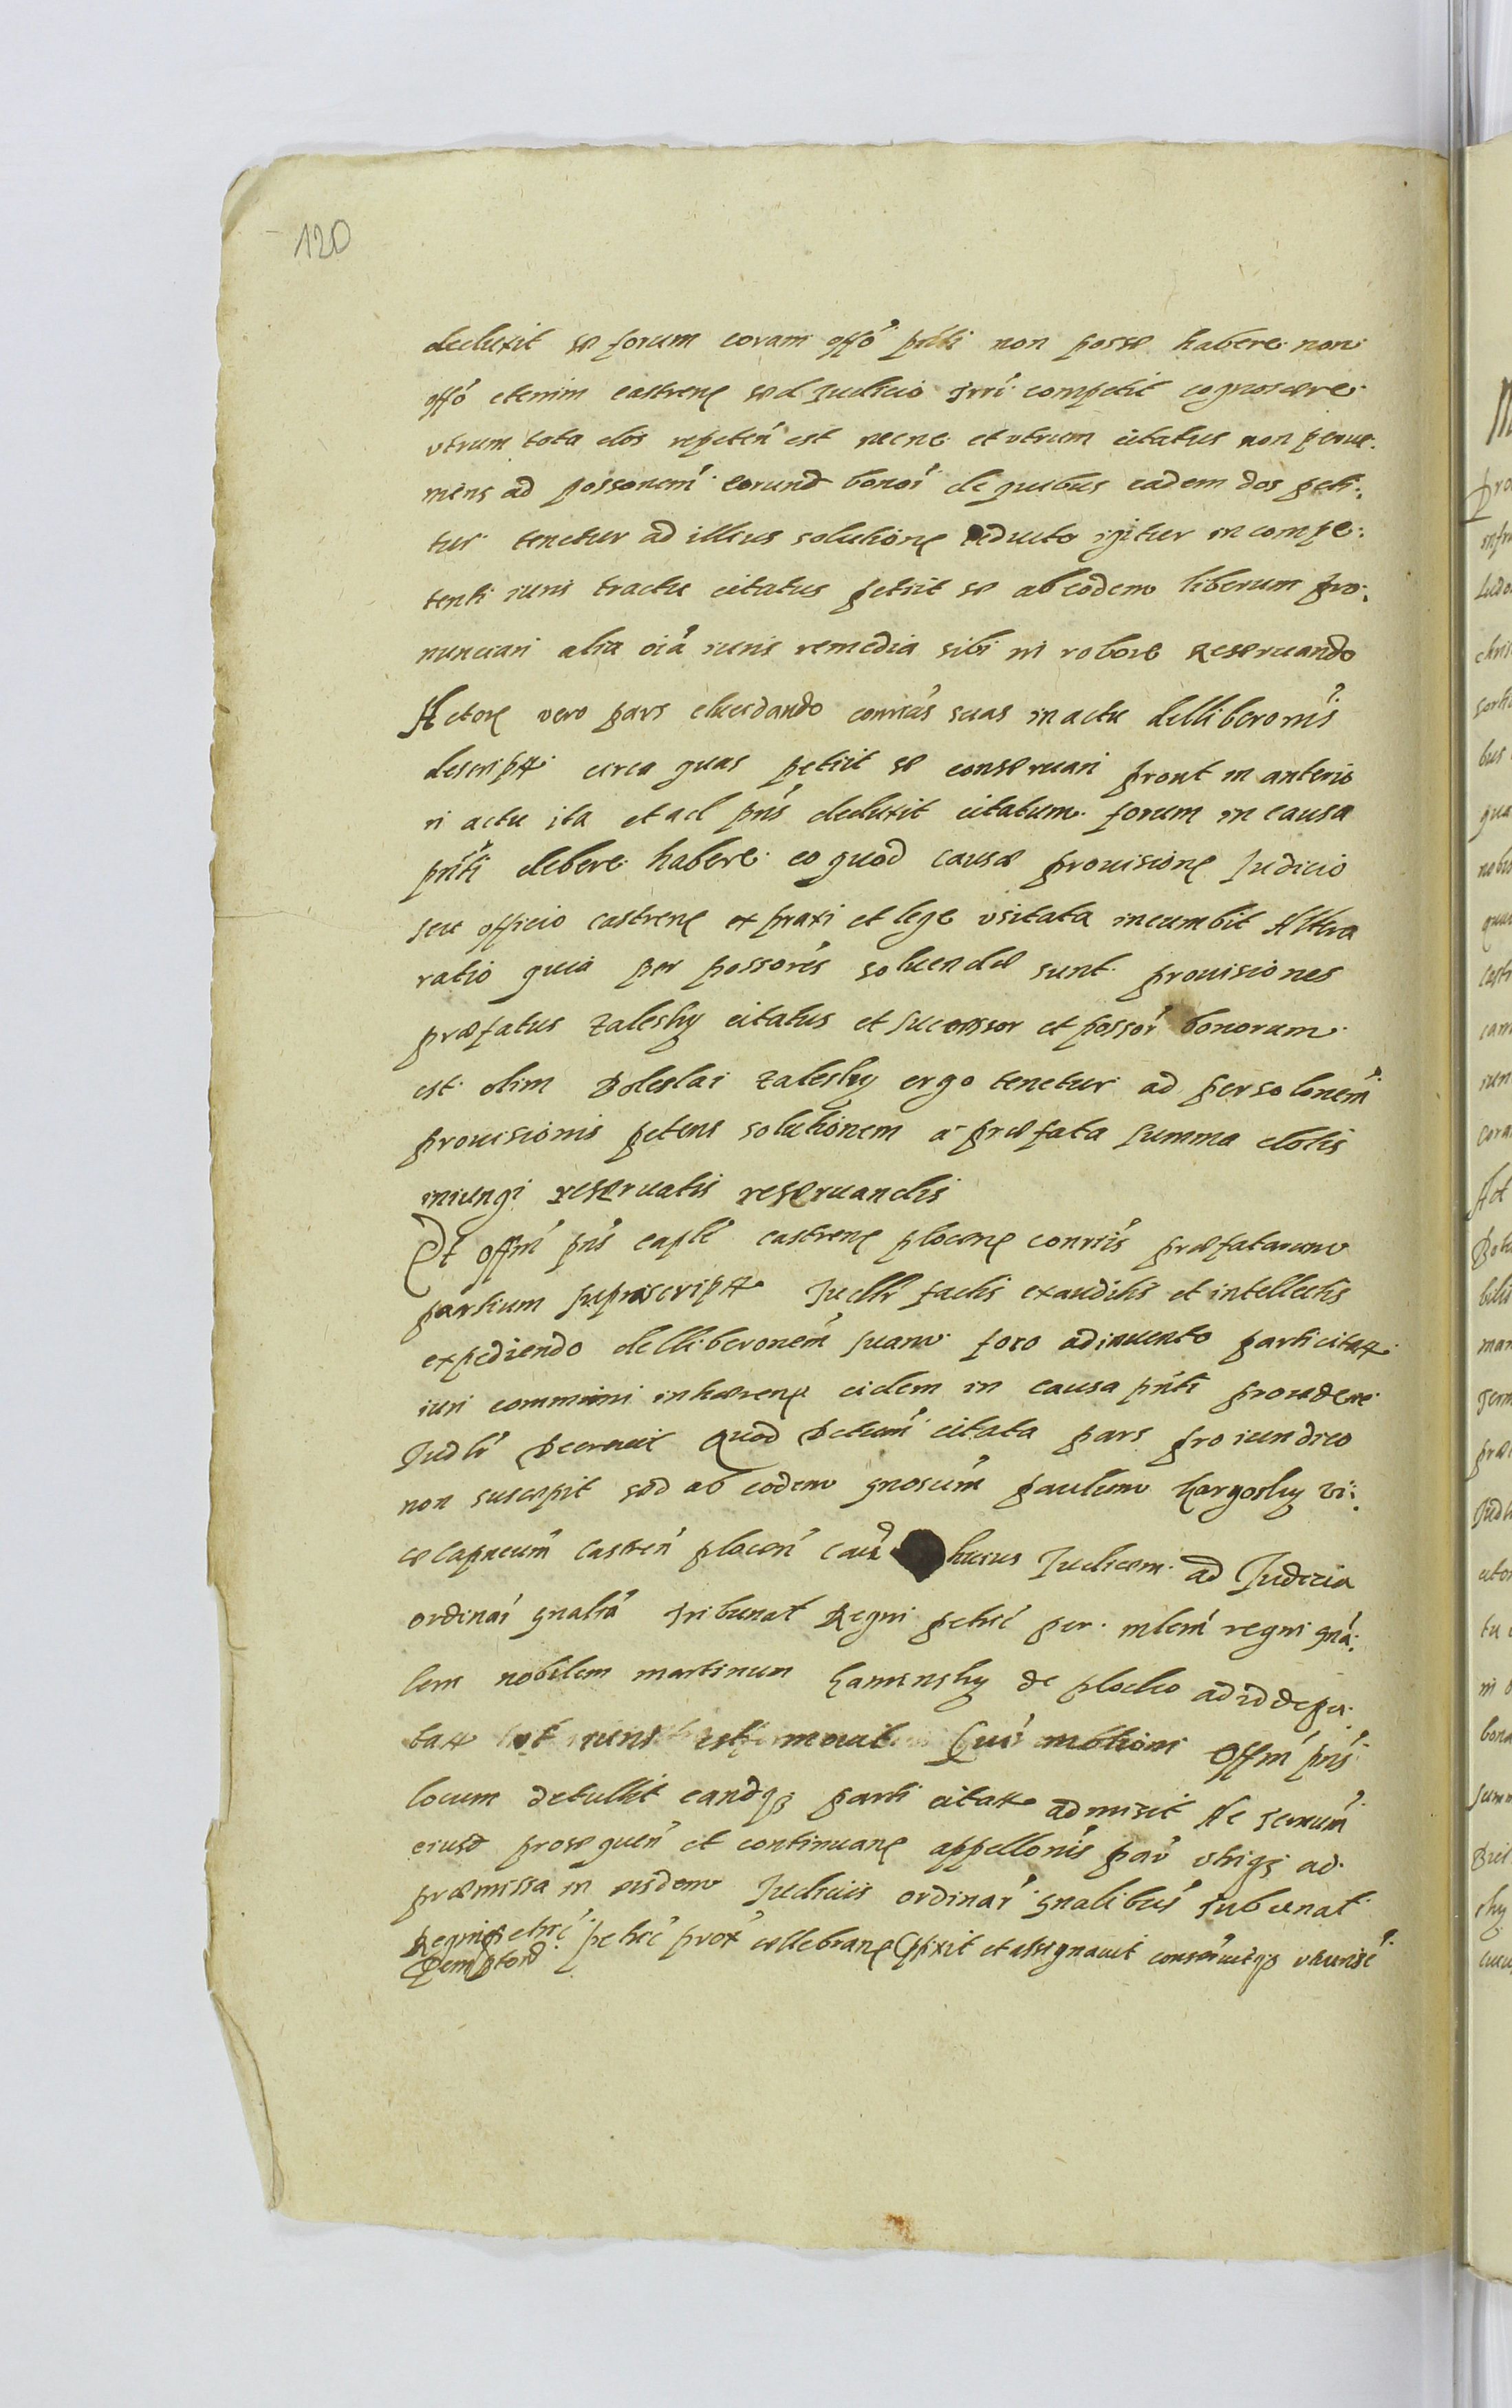 120
deduxit se forum coram offo pnti non posse habere non
offo etenim castren sed Judicio trri competit cognoscere
vtrum tota dos repeten est necne et vtrum citatus non perue:
niens ad possonem eorund bonor de quibus eadem dos peti:
tur tenetur ad illius solutione deducto igitur in compe:
tenti iuris tractu citatus petiit se ab eodem liberum pro:
nunciari alia oia iuris remedia sibi in robore reseruando
Actore vero pars elucidando contrias suas in actu delliberonis
descript circa quas petiit se conseruari prout in anterio
ri actu ita et ad pns deduxit citatum forum in causa
pnti debere habere eo quod causæ prouisione Judicio
seu officio castren ex praxi et lege vsitata incumbit Altera
ratio quia per possores soluendæ sunt prouisiones
præfatus Zalesky citatus et successor et possor bonorum
est olim Boleslai Zalesky ergo tenetur ad persolonem
prouisionis petens solutionem a præfata summa dotis
iniungi reseruatis reseruandis
Et offm pns capli castren plocen contriis præfatarum
partium suprascript Judlr factis exauditis et intellectis
expediendo delliberonem suam foro adinuento parti citatæ
iuri communi inhæren eidem in causa pnti procedere
Judlr decreuit Quod decretum citata pars pro iundico
non suscepit sed ab eodem gnosum paulum Kargosky vi:
cecapneum castren plocen caus huius Judicem ad Judicia
ordinar gnalia tribunat Regni petric per mlem regni gna:
lem nobilem martinum Kaminsky de plocko ad id depu:
tat vt iuris est mouit Cui motioni Offm pns
locum detullit eandq parti citatæ admisit Ac termum
eiusd prosequen et continuan appellonis par vtriq ad
præmissa in eisdem Judiciis ordinar gnalibus tribunat
Regni petric petric prox cellebran prefixit et assignauit conseruitq vt iuris e
Pemptord